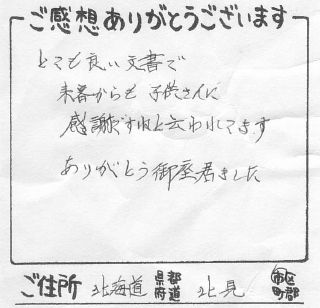 ご感想ありがとうございます
とても良い文書で
来客からも子供さんに
感謝ですねと云われてます
ありがとう御座居ました
ご住所 北海道 都道府県 北見 市区町郡